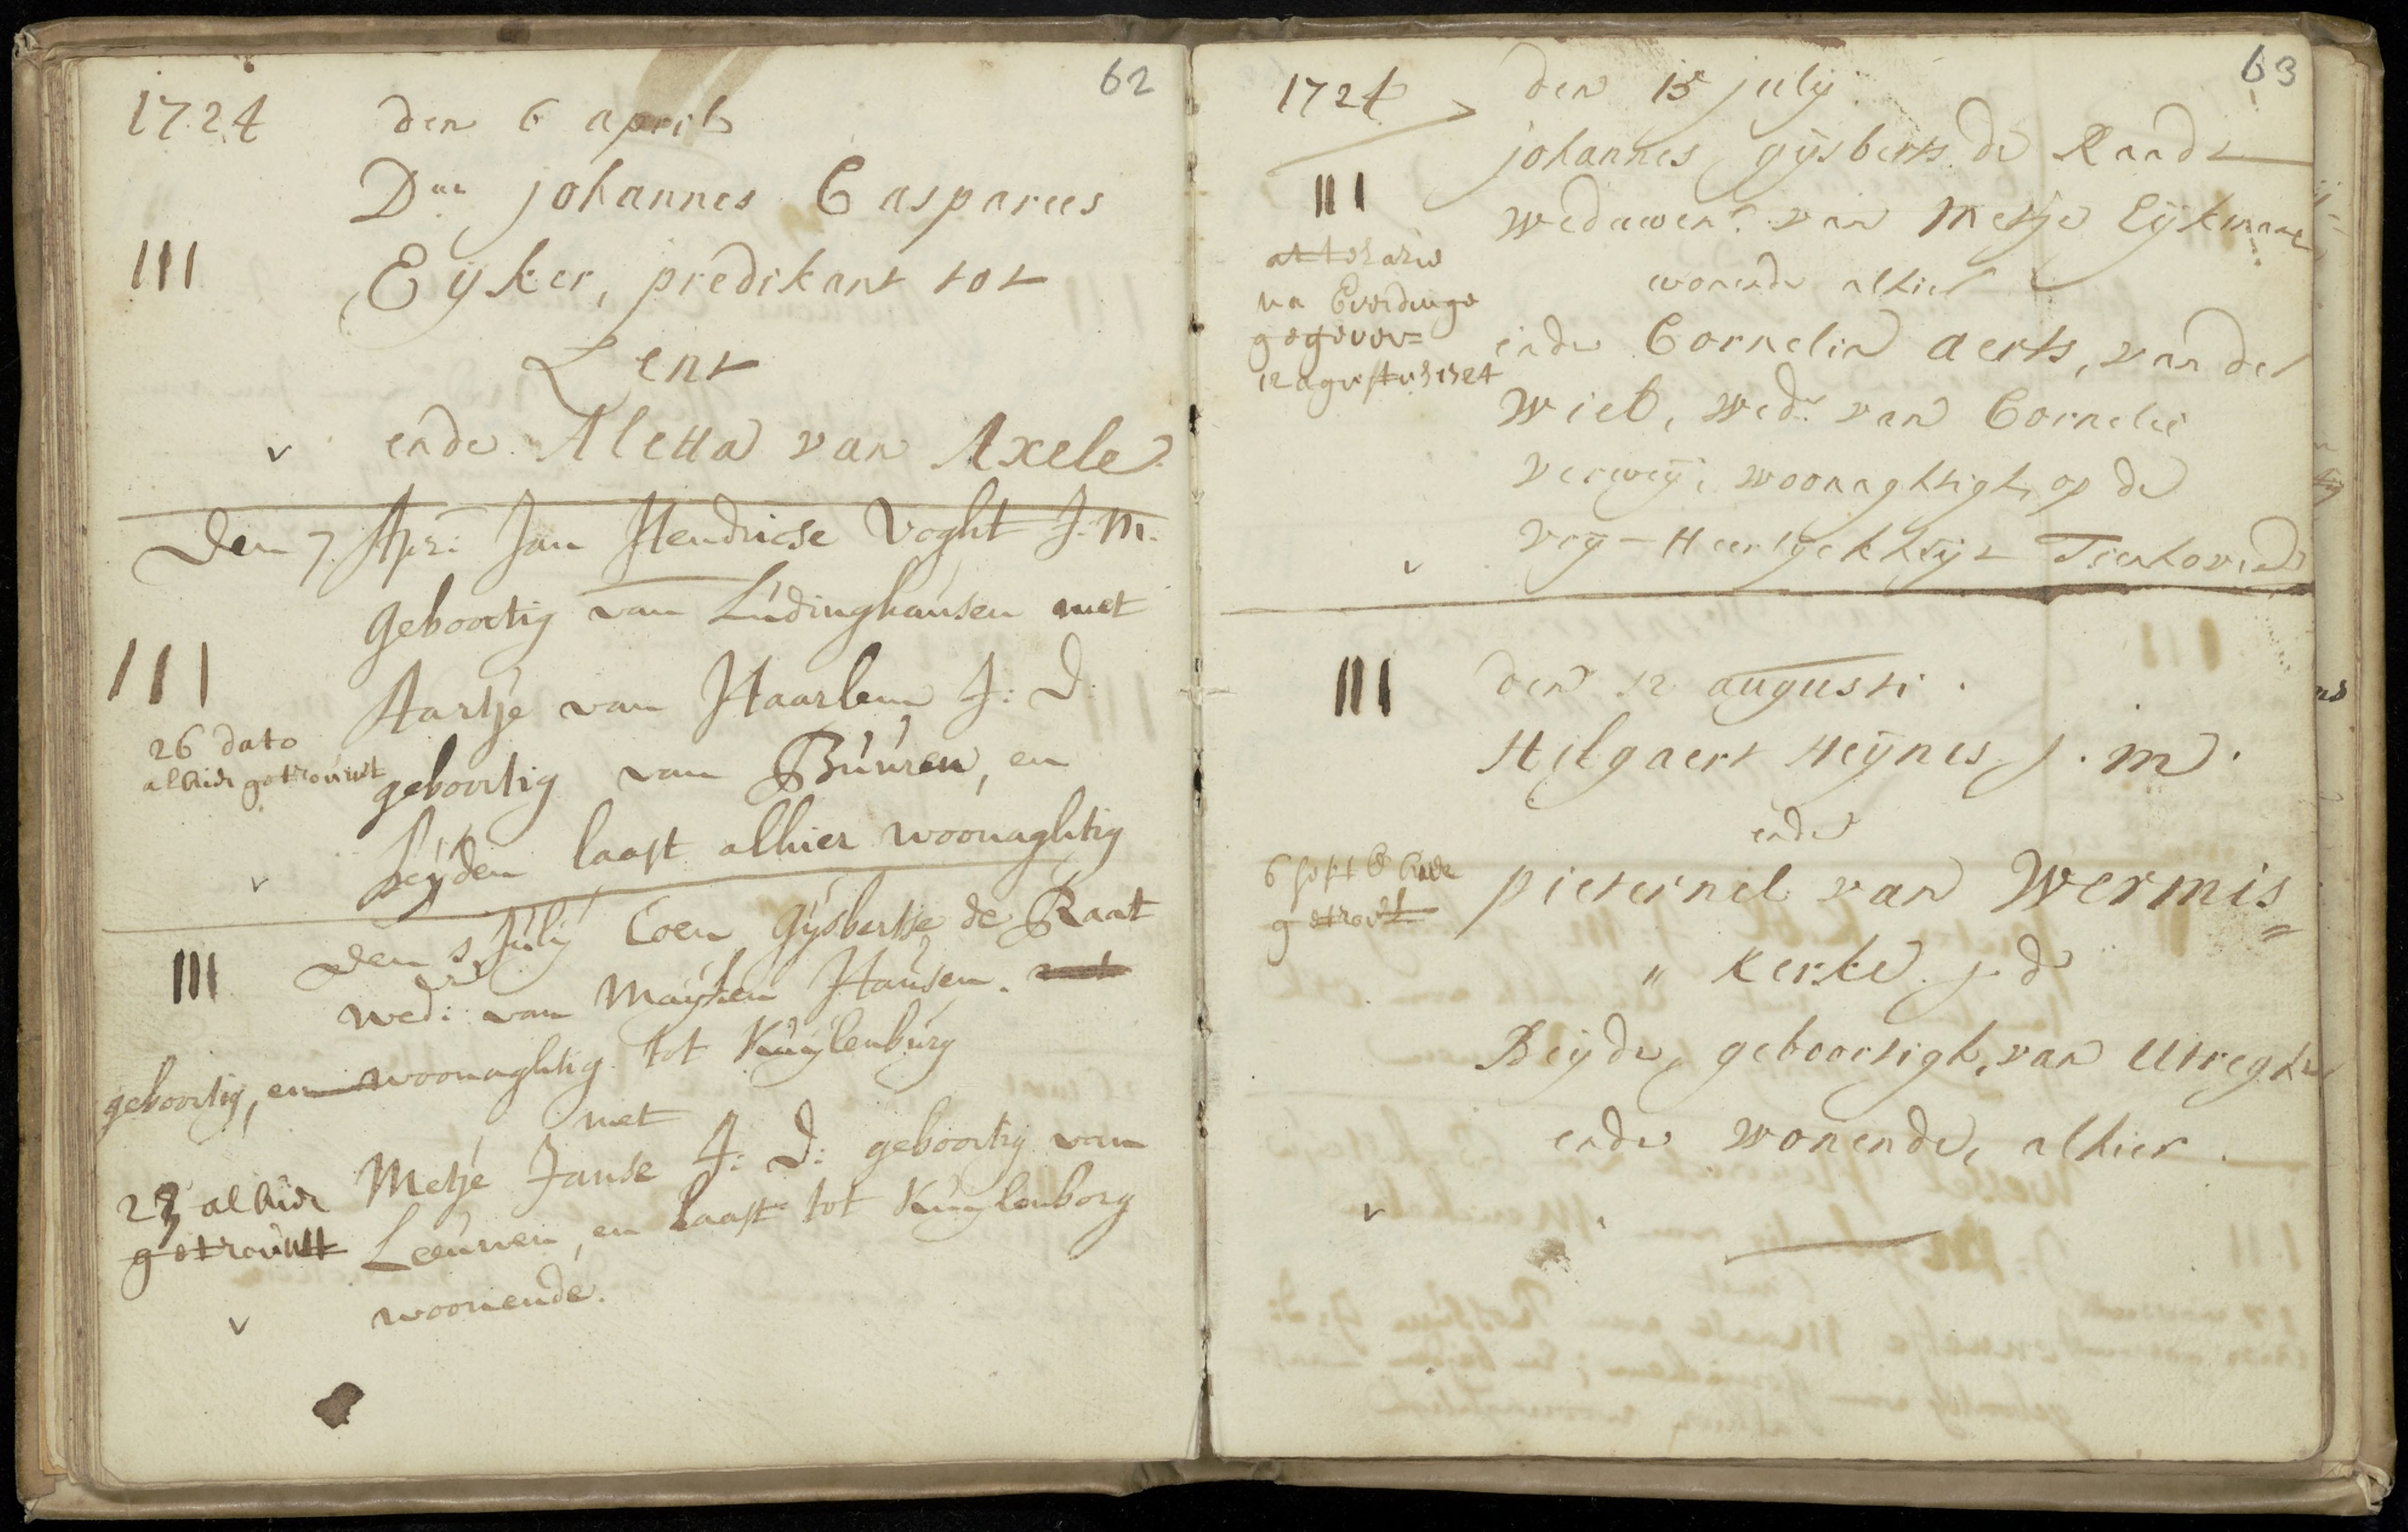 62
1724 den 6 april
Dns johannes Casparus
III Eyker, predikant tot
Lent
v ende Aletta van Axele
Den 7. Apr: Jan Hendricse Voght J: M.
Geboortig van Lúdinghaúsen met
III Aartje van Haarlem J: D:
26 dato
alhier getrouwt
geboortig van Búúren, en
v Leyden laast alhier woonaghtig
III Den 5 Júlÿ Coen Gÿsbertse de Raat
wedr: van Maÿken Hansen.
geboortig, en woonaghtig tot Kuÿlenbúrg
met
Metje Janse J: D: geboortig van
23 alhier
getrouwtt
Leeúwen, en laast tot Kuÿlenborg
v woonende.
63
1724 den 15 julij
johannes gijsberts de Raadt
III weduwenr. van Metje Eijkmans
attestatie
na Everdinge
gegeven=
12 agustus 1724
wonende alhier
ende Cornelia aerts, van der
Wiel, wedr van Cornelis
verweij, woonaghtigh, op de
v vrij-Heerlijckheijt Tienhoven
III den 12 augusti.
Hilgaert Heijnes j. m.
ende
6 sept alhier
getrout
pieternel van Wermis
= " kerke j. d
Beijde, geboortigh, van Utreght
ende wonende, alhier.
v